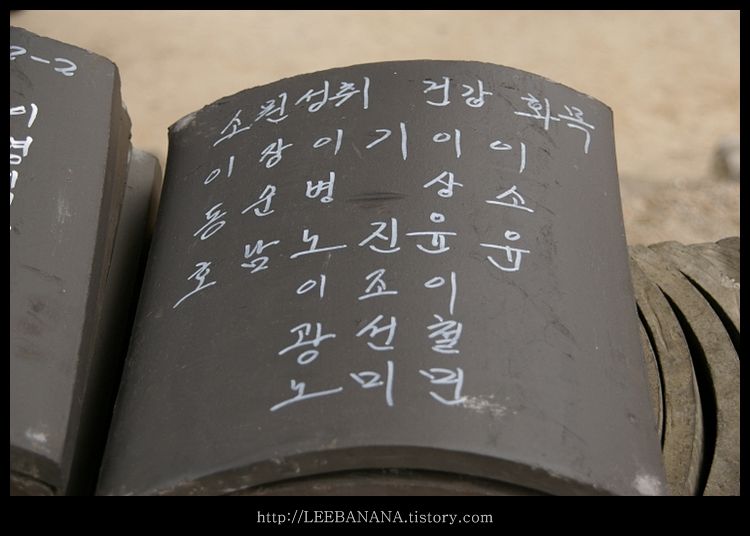 2-2
이
소원성취 건강 화목
이동호
장순남
이병노
이광노
기진
조선미
이상윤
이철면
이소윤
http://LEEBANANA.tistory.com